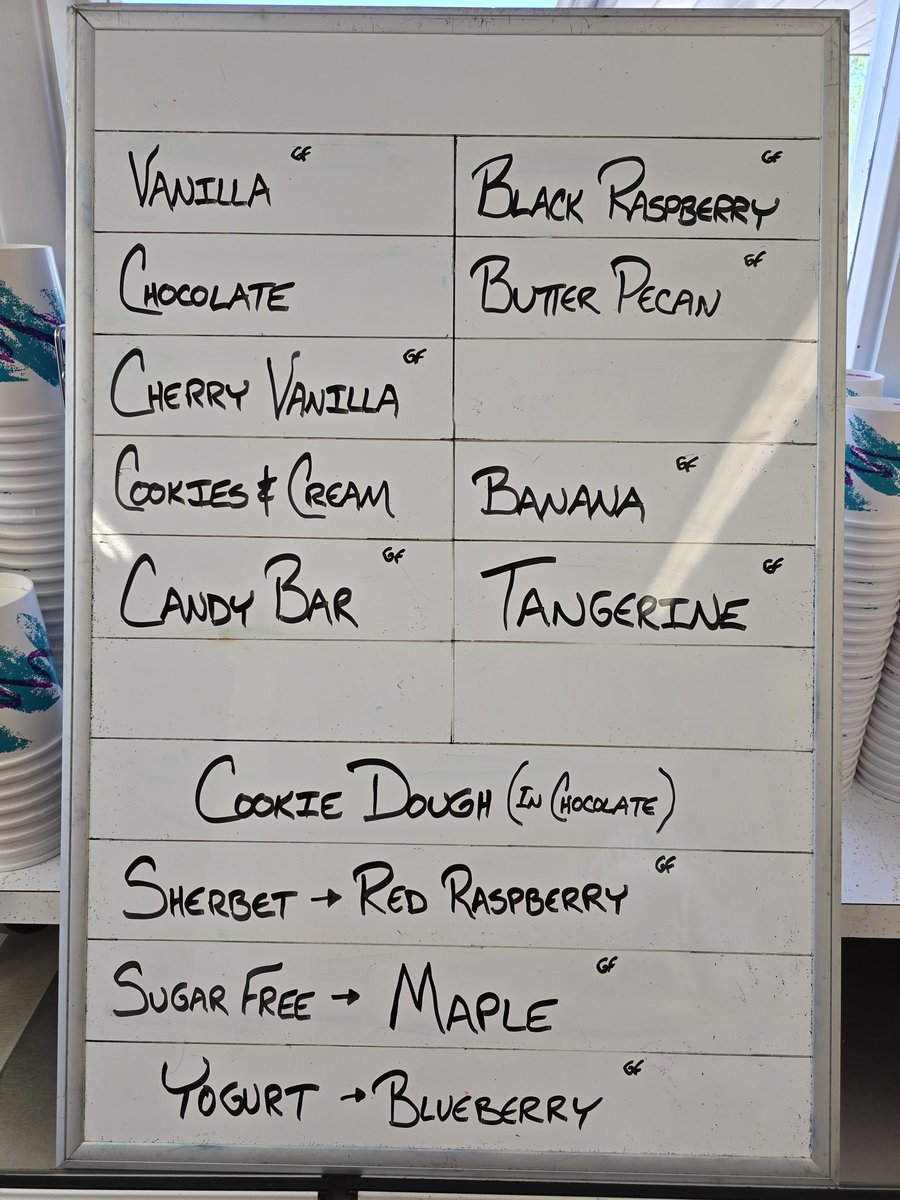 VANILLA GF
BLACK RASPBERRY GF
CHOCOLATE
BUTTER PECAN GF
CHERRY VANILLA GF
COOKIES & CREAM
BANANA GF
CANDY BAR GF
TANGERINE GF
COOKIE DOUGH (IN CHOCOLATE)
SHERBET → RED RASPBERRY GF
SUGAR FREE → MAPLE GF
YOGURT → BLUEBERRY GF